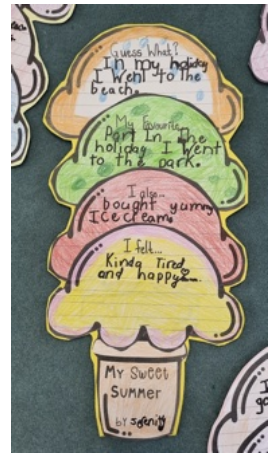 Guess What?
In my holiday
I went to the
beach.
My Favourite
Part In The
holiday I went
to the park.
I also...
bought yummy
Icecream.
I felt...
Kinda Tired
and happy
My Sweet
Summer
by Serenity